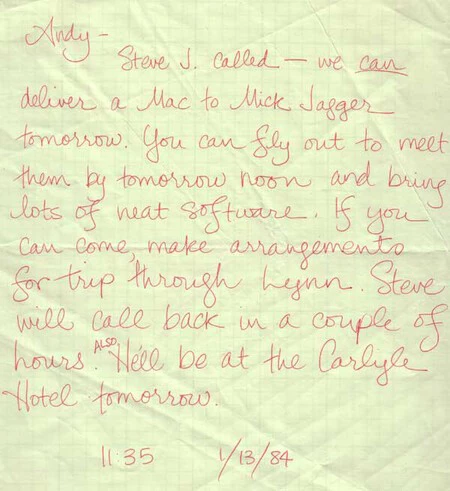 Andy -
Steve J. called — we can
deliver a Mac to Mick Jagger
tomorrow. You can fly out to meet
them by tomorrow noon and bring
lots of neat software. If you
can come, make arrangements
for trip through Lynn. Steve
will call back in a couple of
hours. ALSO He'll be at the Carlyle
Hotel tomorrow.
11:35 1/13/84